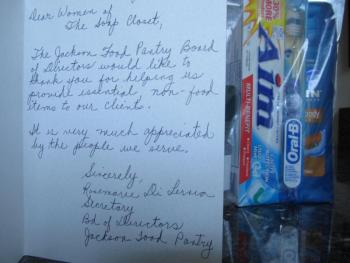 Dear Women of
The Soap Closet,
The Jackson Food Pantry Board
of Directors would like to
thank you for helping us
provide essential, non-food
items to our clients.
It is very much appreciated
by the people we serve.
Sincerely,
Rosemarie Di
Secretary
Bd of Directors
Jackson Food Pantry
30%
MORE
Aim
MULTI-BENEFIT
Oral-B